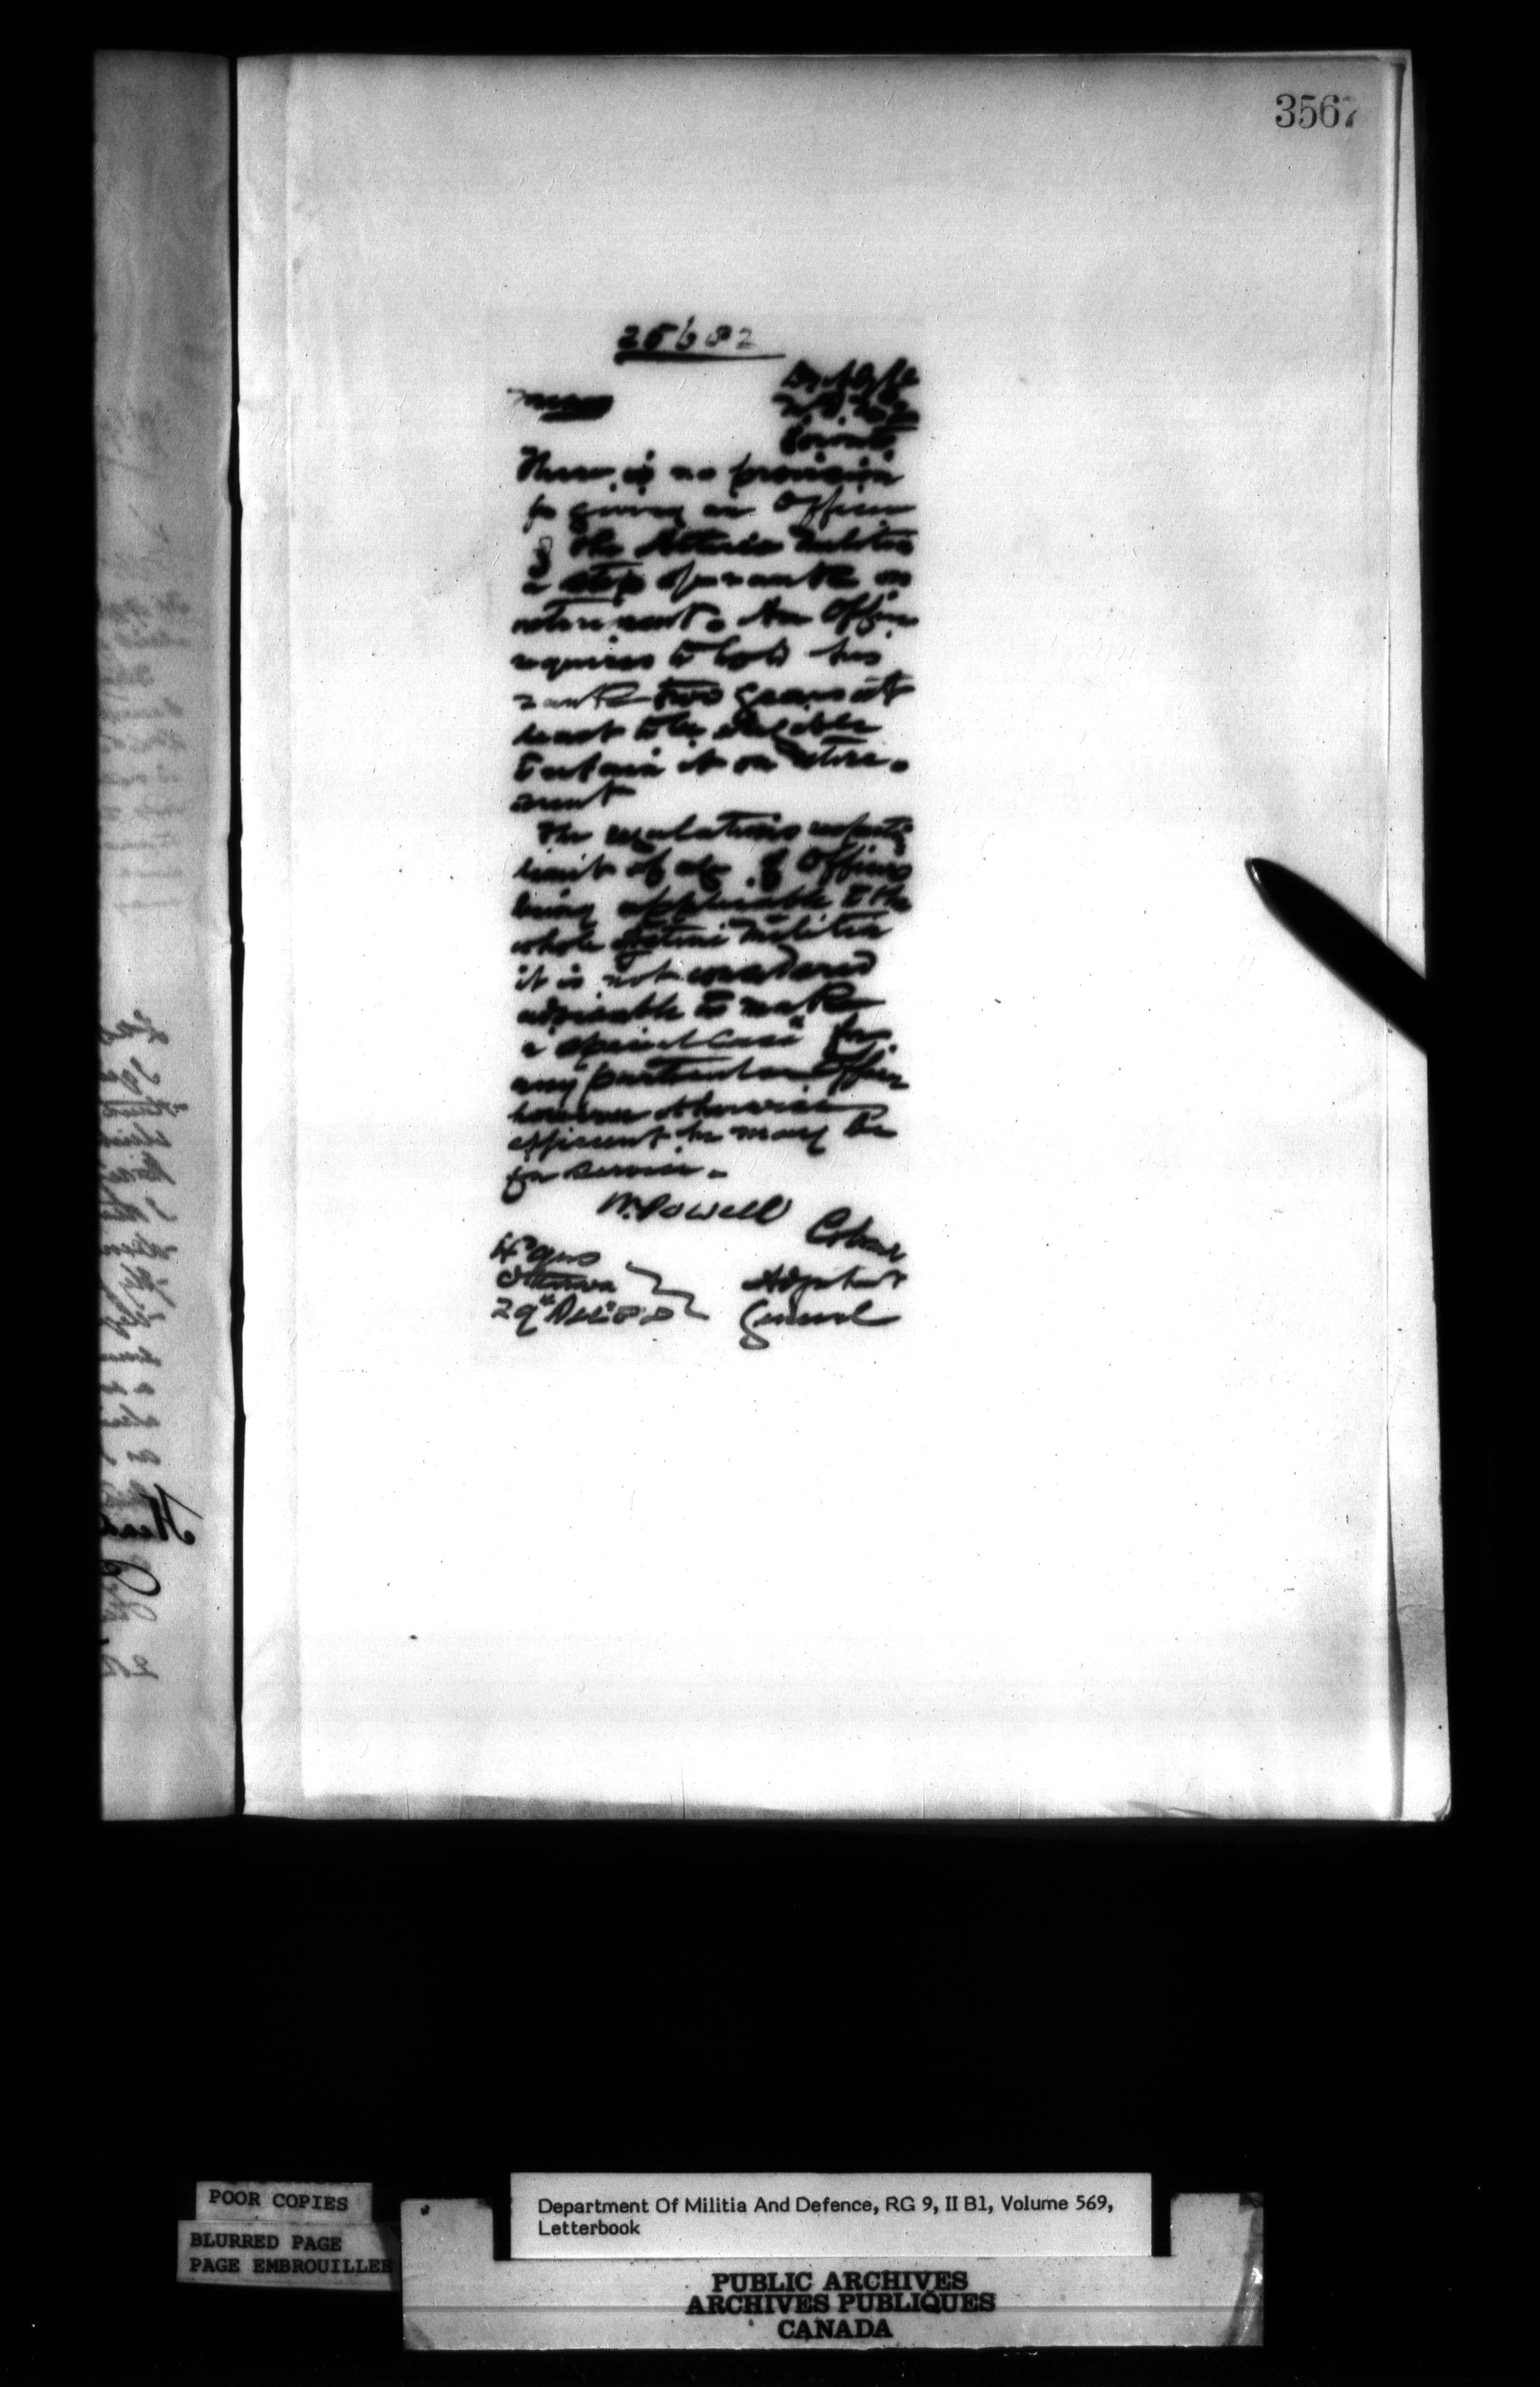 3567
25682
Memo
Toronto
There is no provision
for giving an Officer
of the Active Militia
a step of rank on
retirement. An Officer
requires to hold his
rank two years at
least to be eligible
to retain it on retire-
ment
The regulations respecting
limit of age of Officers
being applicable to the
whole Active Militia
it is not considered
advisable to make
a special case for
any particular Officer
however otherwise
efficient he may be
for service.
W. Powell
Colonel
Adjutant
General
Hd Qrs
Ottawa
29th
POOR COPIES
BLURRED PAGE
PAGE EMBROUILLEE
Department Of Militia And Defence, RG 9, II B1, Volume 569,
Letterbook
PUBLIC ARCHIVES
ARCHIVES PUBLIQUES
CANADA